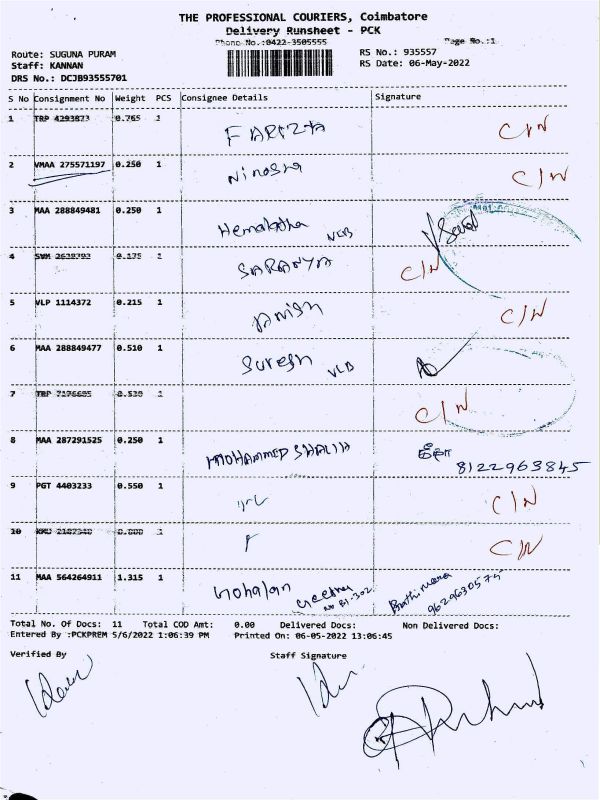 THE PROFESSIONAL COURIERS, Coimbatore
Delivery Runsheet - PCK
Phone No.:0422-3505555 Page No.:1
Route: SUGUNA PURAM RS No.: 935557
Staff: KANNAN RS Date: 06-May-2022
DRS No.: DCJB93555701
S No Consignment No Weight PCS Consignee Details Signature
1 TRP 4293823 0.765 1 FARIZA C/N
2 VMAA 275571197 0.250 1 Ninosha C/N
3 MAA 288849481 0.250 1 Hemalatha VLB
4 0.175 1 SARANYA C/N
5 VLP 1114372 0.215 1 Anish C/N
6 MAA 288849477 0.510 1 Suresh VLB
7 TRP 7176685 0.530 1 C/N
8 MAA 287291525 0.250 1 MOHAMMED SHALIH கீதா
8122963845
9 PGT 4403233 0.550 1 C/N
10 1 C/N
11 MAA 564264911 1.315 1 Geetha
9629630575
Total No. Of Docs: 11 Total COD Amt: 0.00 Delivered Docs: Non Delivered Docs:
Entered By :PCKPREM 5/6/2022 1:06:39 PM Printed On: 06-05-2022 13:06:45
Verified By Staff Signature